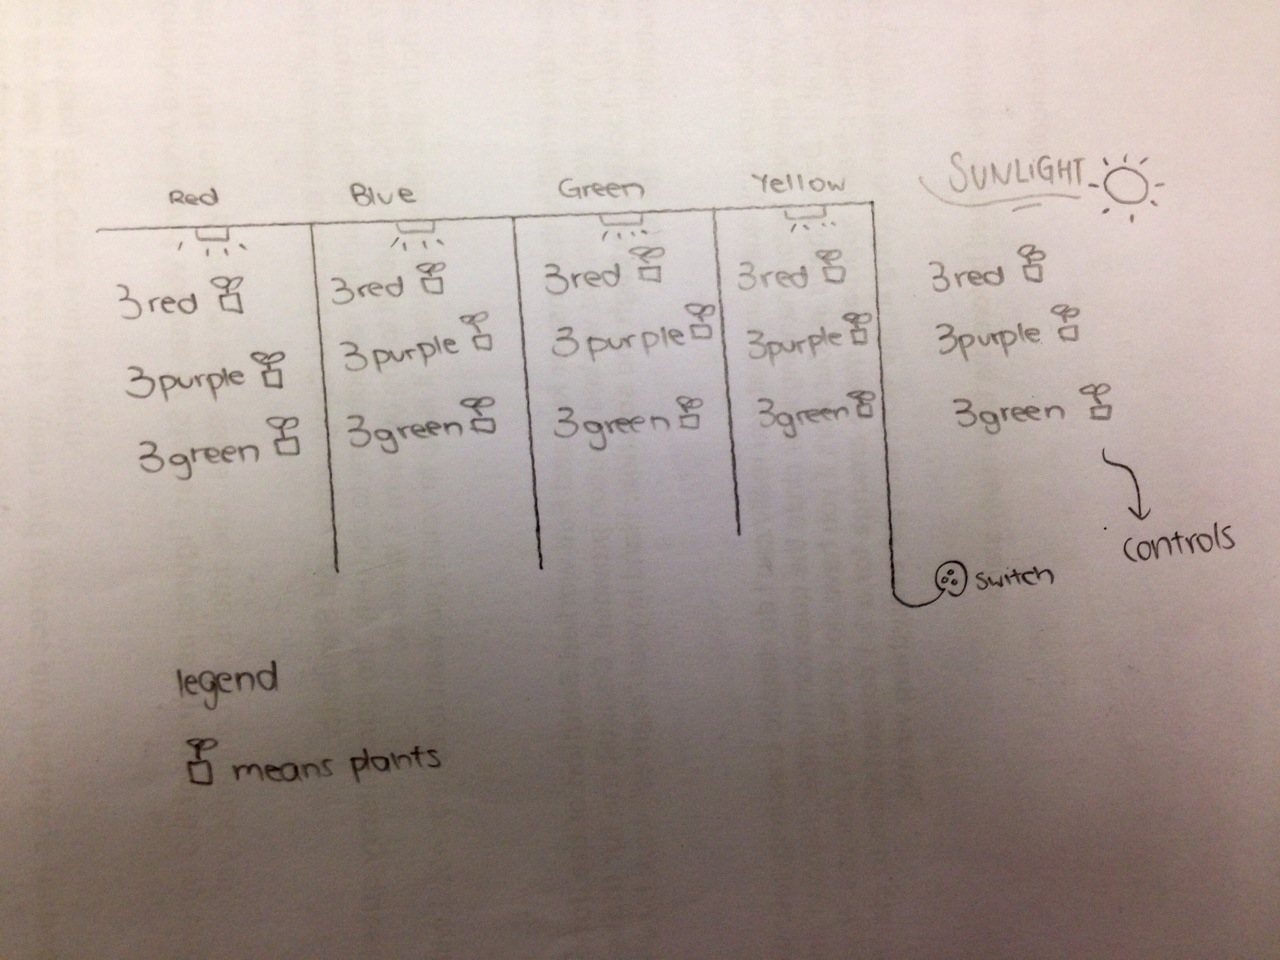 Red Blue Green Yellow SUNLIGHT
3red 3red 3red 3red 3red
3purple 3purple 3purple 3purple 3purple
3green 3green 3green 3green 3green
controls
switch
legend
means plants